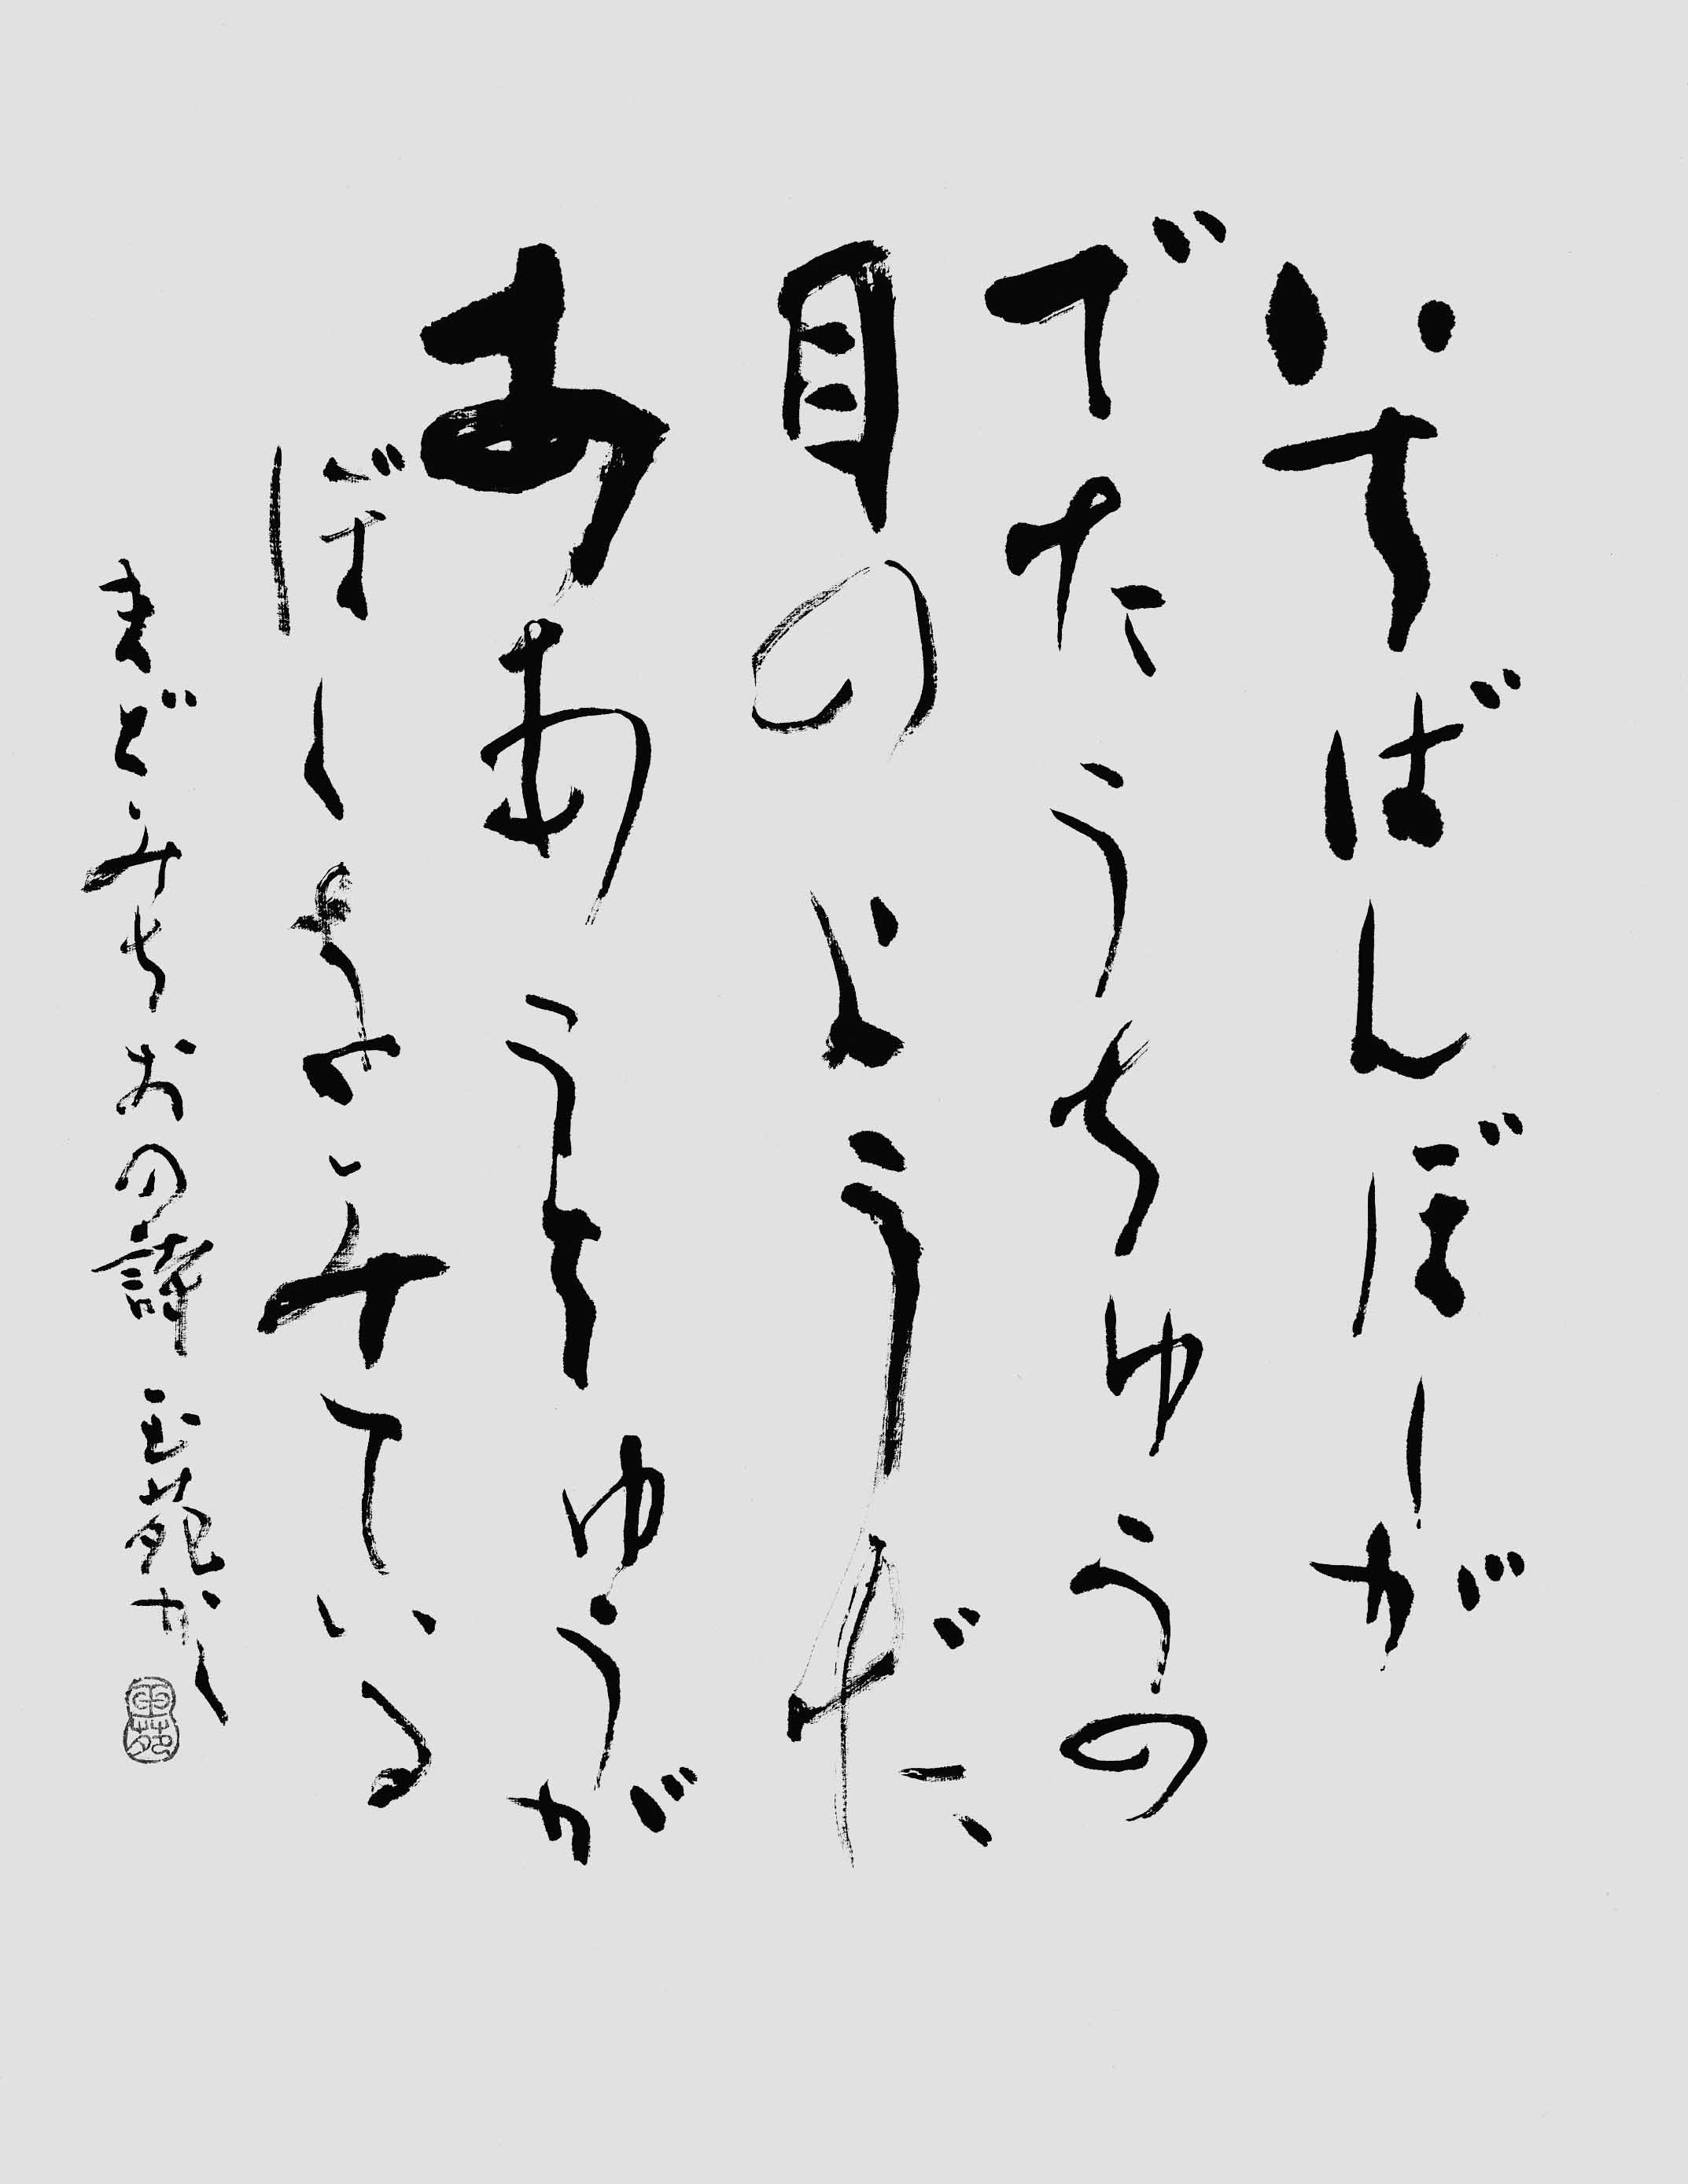 いちばんぼしが
でたうちゅうの
目のようだ
ああうちゅうが
ぼくをみている
まどみちおの詩 玉苑かく
玉苑